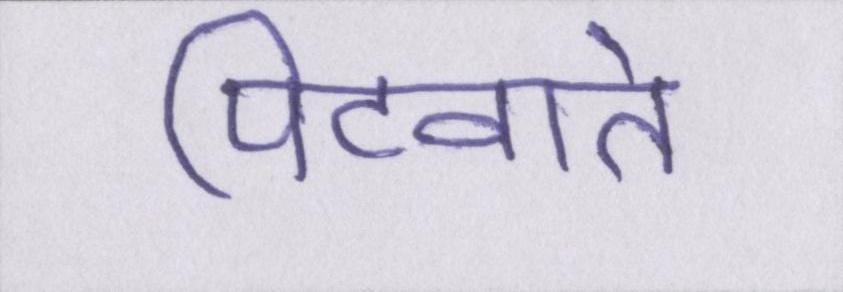 पिटवाते